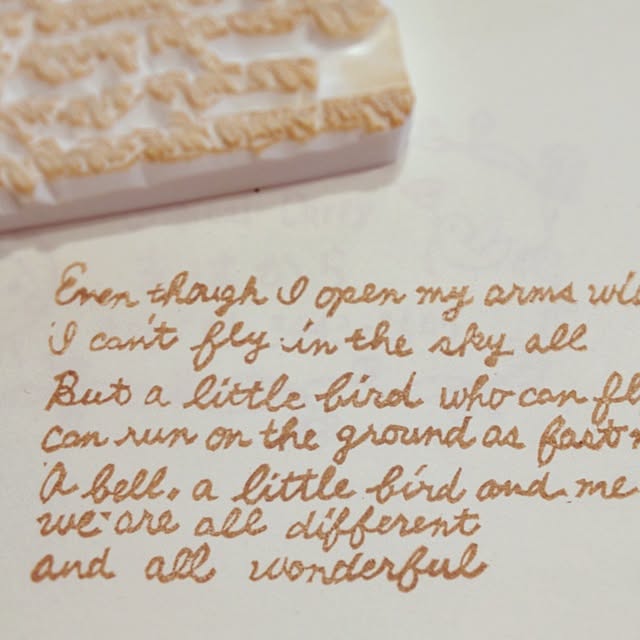 Even though I open my arms
I can't fly in the sky all
But a little bird who can
can run on the ground as fast
A bell, a little bird and me
we are all different
and all wonderful